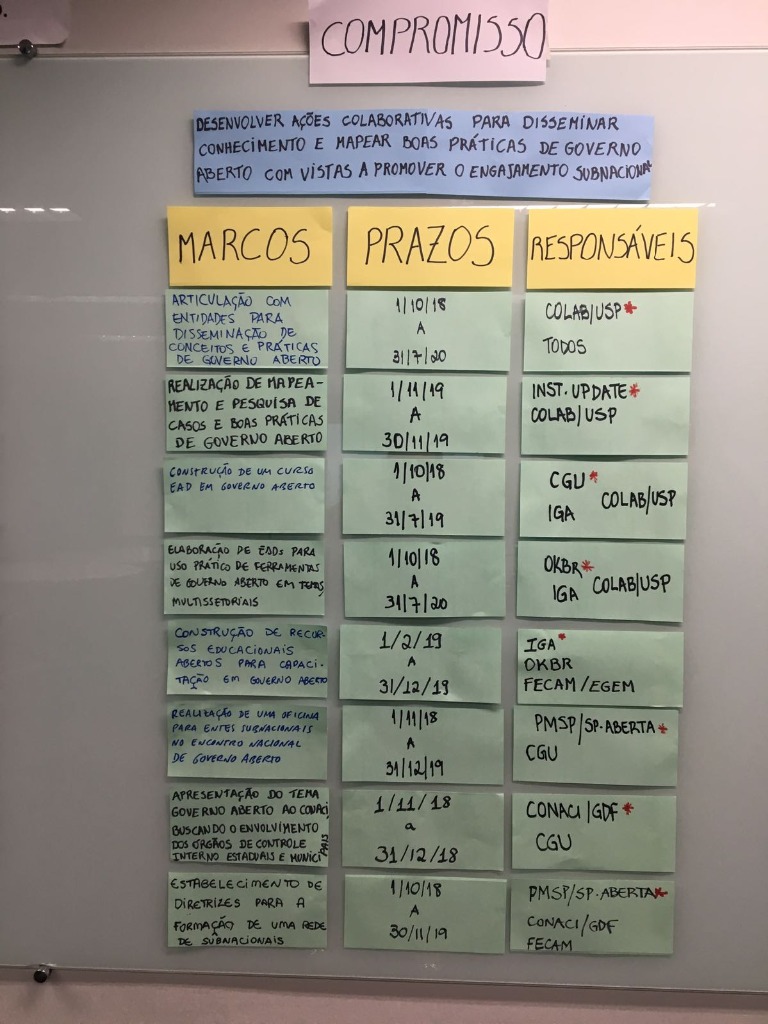 COMPROMISSO
DESENVOLVER AÇÕES COLABORATIVAS PARA DISSEMINAR
CONHECIMENTO E MAPEAR BOAS PRÁTICAS DE GOVERNO
ABERTO COM VISTAS A PROMOVER O ENGAJAMENTO SUBNACIONAL
MARCOS
PRAZOS
RESPONSÁVEIS
ARTICULAÇÃO COM
ENTIDADES PARA
DISSEMINAÇÃO DE
CONCEITOS E PRÁTICAS
DE GOVERNO ABERTO
1/10/18
A
31/7/20
COLAB/USP*
TODOS
REALIZAÇÃO DE MAPEA-
MENTO E PESQUISA DE
CASOS E BOAS PRÁTICAS
DE GOVERNO ABERTO
1/11/19
A
30/11/19
INST. UPDATE*
COLAB/USP
CONSTRUÇÃO DE UM CURSO
EAD EM GOVERNO ABERTO
1/10/18
A
31/7/19
CGU*
IGA COLAB/USP
ELABORAÇÃO DE EADs PARA
USO PRÁTICO DE FERRAMENTAS
DE GOVERNO ABERTO EM TEMAS
MULTISSETORIAIS
1/10/18
A
31/7/20
OKBR*
IGA COLAB/USP
CONSTRUÇÃO DE RECUR-
SOS EDUCACIONAIS
ABERTOS PARA CAPACI-
TAÇÃO EM GOVERNO ABERTO
1/2/19
A
31/12/19
IGA*
OKBR
FECAM/EGEM
REALIZAÇÃO DE UMA OFICINA
PARA ENTES SUBNACIONAIS
NO ENCONTRO NACIONAL
DE GOVERNO ABERTO
1/11/18
A
31/12/19
PMSP/SP-ABERTA*
CGU
APRESENTAÇÃO DO TEMA
GOVERNO ABERTO AO CONACI,
BUSCANDO O ENVOLVIMENTO
DOS ÓRGÃOS DE CONTROLE
INTERNO ESTADUAIS E MUNICIPAIS
1/11/18
a
31/12/18
CONACI/GDF*
CGU
ESTABELECIMENTO DE
DIRETRIZES PARA A
FORMAÇÃO DE UMA REDE
DE SUBNACIONAIS
1/10/18
A
30/11/19
PMSP/SP-ABERTA*
CONACI/GDF
FECAM